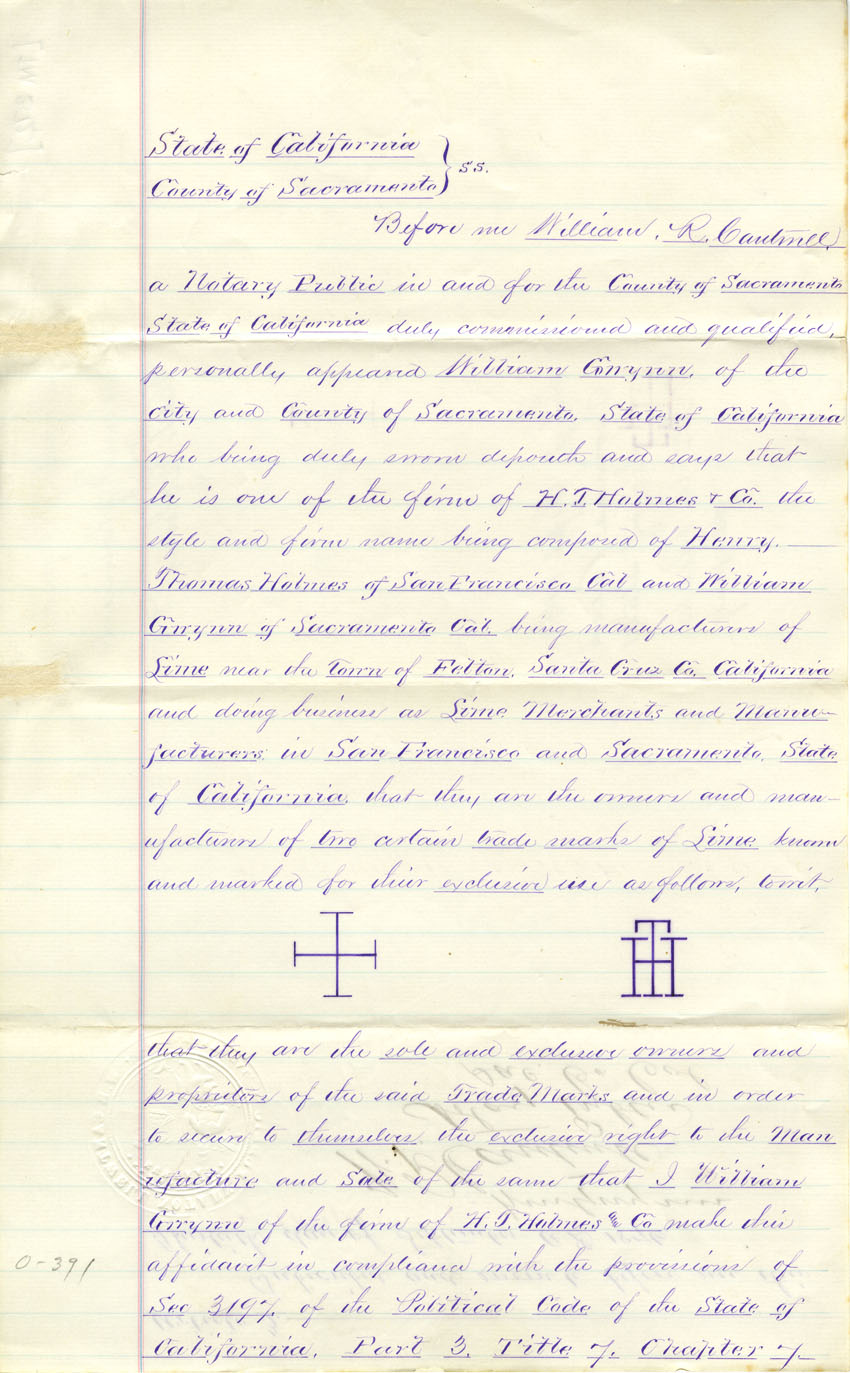 State of California } ss.
County of Sacramento
Before me William. R. Cantwell,
a Notary Public in and for the County of Sacramento
State of California duly commissioned and qualified,
personally appeared William Gwynn, of the
city and County of Sacramento, State of California
who being duly sworn deposeth and says that
he is one of the firm of H. T. Holmes & Co. the
style and firm name being composed of Henry.
Thomas Holmes of San Francisco Cal and William
Gwynn of Sacramento Cal. being manufacturers of
Lime near the town of Felton, Santa Cruz Co, California
and doing business as Lime Merchants and Manu-
facturers, in San Francisco and Sacramento, State
of California, that they are the owners and man-
ufacturers of two certain trade marks of Lime known
and marked for their exclusive use as follows, towit,
that they are the sole and exclusive owners and
proprietors of the said Trade Marks and in order
to secure to themselves the exclusive right to the Man
ufacture and Sale of the same that I William
Gwynn of the firm of H. T. Holmes & Co make this
affidavit in compliance with the provisions of
Sec 3197, of the Political Code of the State of
California, Part 3, Title 7, Chapter 7.
0-391